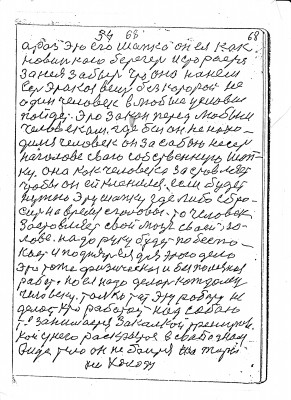 54 68 68
его шапка он ея как
за нея забыл что она на нем
вещь без которой не
один человек в любые условия
пойдет. Это закон перед любым
человеком, где бы он не нахо-
дился человек он за собою несет
на голове свою собственную шап-
ку. она как человека заставляет
чтобы он ей кланялся, если будет
нужно эту шапку где либо сбро-
сить на время с головы то человек
заставляет свой мозг своей го-
лове. надо руку будет побеспо-
коить и поднять для этого дела
Это тоже физическая и бесполезная
работа. но ея надо делать каждому
человеку. только тот эту работу не
делает кто работает над собою
т.е занимается закалкой тренировкой
у него раскрытое свободное
тело он не боится
ни холоду